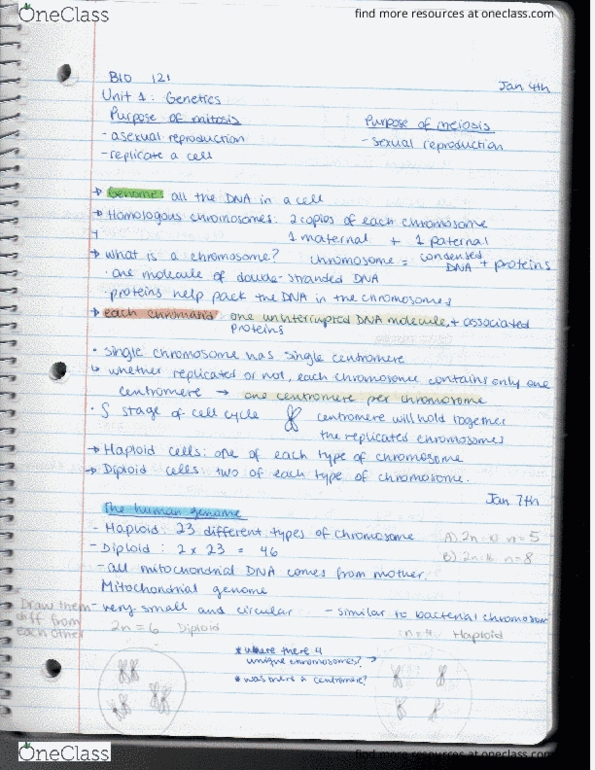 OneClass
find more resources at oneclass.com
BIO 121
Jan 4th
Unit 1: Genetics
Purpose of mitosis
Purpose of meiosis
- asexual reproduction
- sexual reproduction
- replicate a cell
→ Genome: all the DNA in a cell
→ Homologous chromosomes: 2 copies of each chromosome
1 maternal + 1 paternal
→ what is a chromosome? chromosome = condensed DNA + proteins
· one molecule of double-stranded DNA
· proteins help pack the DNA in the chromosomes
→ each chromatid: one uninterrupted DNA molecule, + associated
proteins
· single chromosome has single centromere
↳ whether replicated or not, each chromosome contains only one
centromere → one centromere per chromosome
· S stage of cell cycle centromere will hold together
the replicated chromosomes
→ Haploid cells: one of each type of chromosome
→ Diploid cells: two of each type of chromosome.
Jan 7th
The human genome
- Haploid: 23 different types of chromosome
A) 2n = 10 n = 5
- Diploid: 2 x 23 = 46
B) 2n = 16 n = 8
- all mitochondrial DNA comes from mother.
Mitochondrial genome
- very small and circular - similar to bacterial chromosome
Draw them
diff from
each other
2n = 6 Diploid
n = 4 Haploid
* where there 4
unique chromosomes?
* was there a centromere?
OneClass
find more resources at oneclass.com